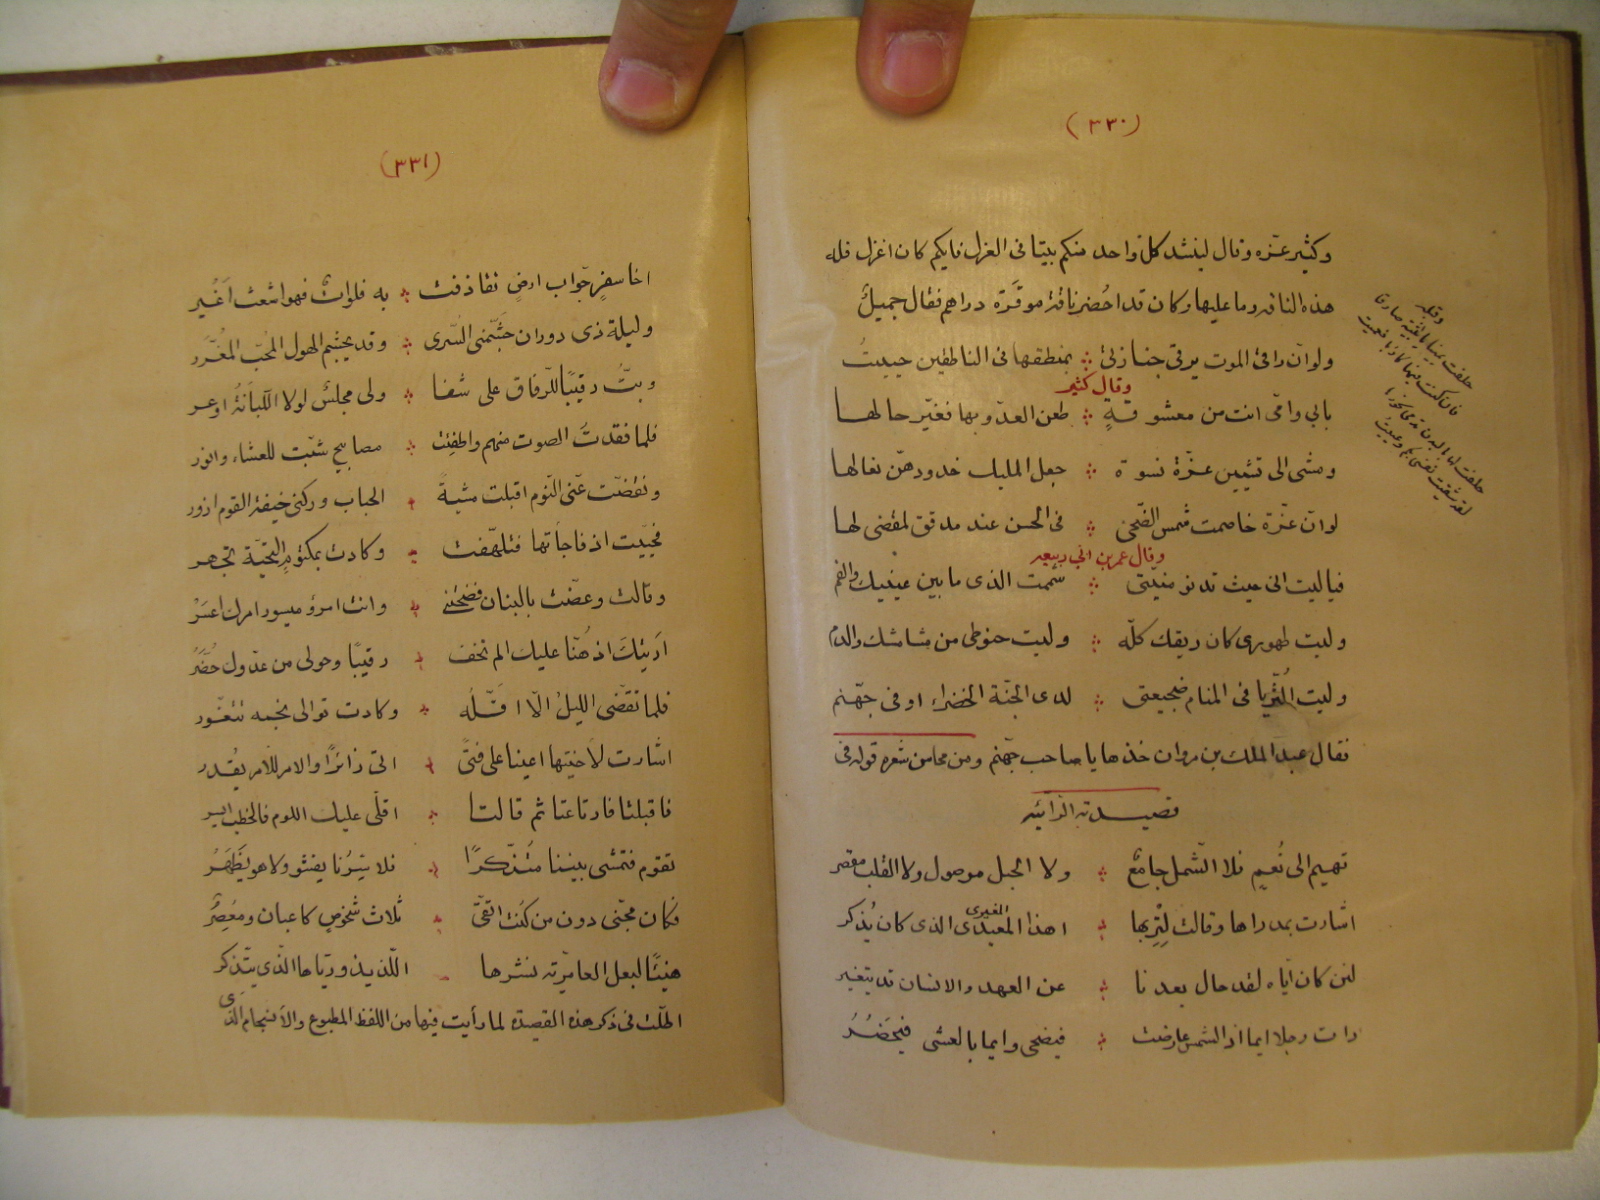 (٣٣٠)
وكثير عزه وقال لينشد كل واحد منكم بيتا فى الغزل فايكم كان اغزل فله
هذه الناقه وما عليها وكان قد احضر ناقة موقرة دراهم فقال جميل
ولو ان راقى الموت يرقى جنازتى ⁘ بمنطقها فى الناطقين حييت
وقال كثير
بابى وامى انت من معشوقةٍ ⁘ طعن العدو بها فغير حالها
ومشى الى تشيين عزة نسوة ⁘ جعل المليك خدودهن نعالها
لو ان عزة خاصمت شمس الضحى ⁘ فى الحسن عند مدقق لمقضى لها
وقال عمر بن ابي ربيعه
فياليت انى حيث تدنو منيتى ⁘ شممت الذى ما بين عينيك والفم
وليت طهورى كان ريقك كله ⁘ وليت حنوطى من مشاشك والدم
وليت الثريا فى المنام ضجيعتى ⁘ لدى الجنة الخضراء او فى جهنم
فقال عبد الملك بن مروان خذها يا صاحب جهنم ومن محاسن شعره قوله فى
قصيدته الرائيه
تهيم الى نُعمٍ فلا الشمل جامع ⁘ ولا الحبل موصول ولا القلب مقصر
اشارت بمدراها وقالت لِتِربها ⁘ اهذا المعيدى الذى كان يُذكر
المغيرى
لئن كان اياه لقد حال بعدنا ⁘ عن العهد والانسان قد يتغير
رات رجلا ايما اذ الشمس عارضت ⁘ فيضحى وايما بالعشى فيخضرُ
وقله
حلفت يمينا يا بثينة صادقا
فان كنت فيها كاذبا فعميت
حلفت لها
(٣٣١)
اخا سفرٍ جواب ارضٍ تقاذفت ⁘ به فلوات فهو اشعث اغبر
وليلة ذى دوران جشمنى السرى ⁘ وقد يجشم الهول المحب المغرر
وبتُّ رقيبًا للرفاق على شفا ⁘ ولى مجلس لولا اللبانة اوعر
فلما فقدتُ الصوت منهم واطفئت ⁘ مصابيح شبت للعشاء وانور
ونفضت عنى النوم اقبلت مشية ⁘ الحباب وركنى خيفة القوم ازور
فحييت اذ فاجأتها فتلهفت ⁘ وكادت بمكتومِ التحية تجهر
وقالت وعضت بالبنان فضحتنى ⁘ وانت امرؤ ميسور امرك اعسر
اَرَيْتَكَ اذ هُنّا عليك الم تخف ⁘ رقيبًا وحولى من عدوك حُضَّرُ
فلما تقضى الليلُ الّا اقلّه ⁘ وكادت توالى نجمه تتغور
اشارت لأختيها اعينا على فتىً ⁘ اتى زائرًا والامر للامر يقدر
فاقبلتا فارتاعتا ثم قالتا ⁘ اقلّى عليك اللوم فالخطب ايسر
تقوم فتمشى بيننا متنكرًا ⁘ فلا سِرّنا يفشو ولا هو يَظْهَرُ
فكان مجنى دون من كنت اتقى ⁘ ثلاث شخوص كاعبان ومعصر
هنيئًا لبعل العامرية نشرها اللذيذ ورياها الذى يتذكر
اطلت فى ذكر هذه القصيدة لما رأيت فيها من اللفظ المطبوع والانسجام الذى